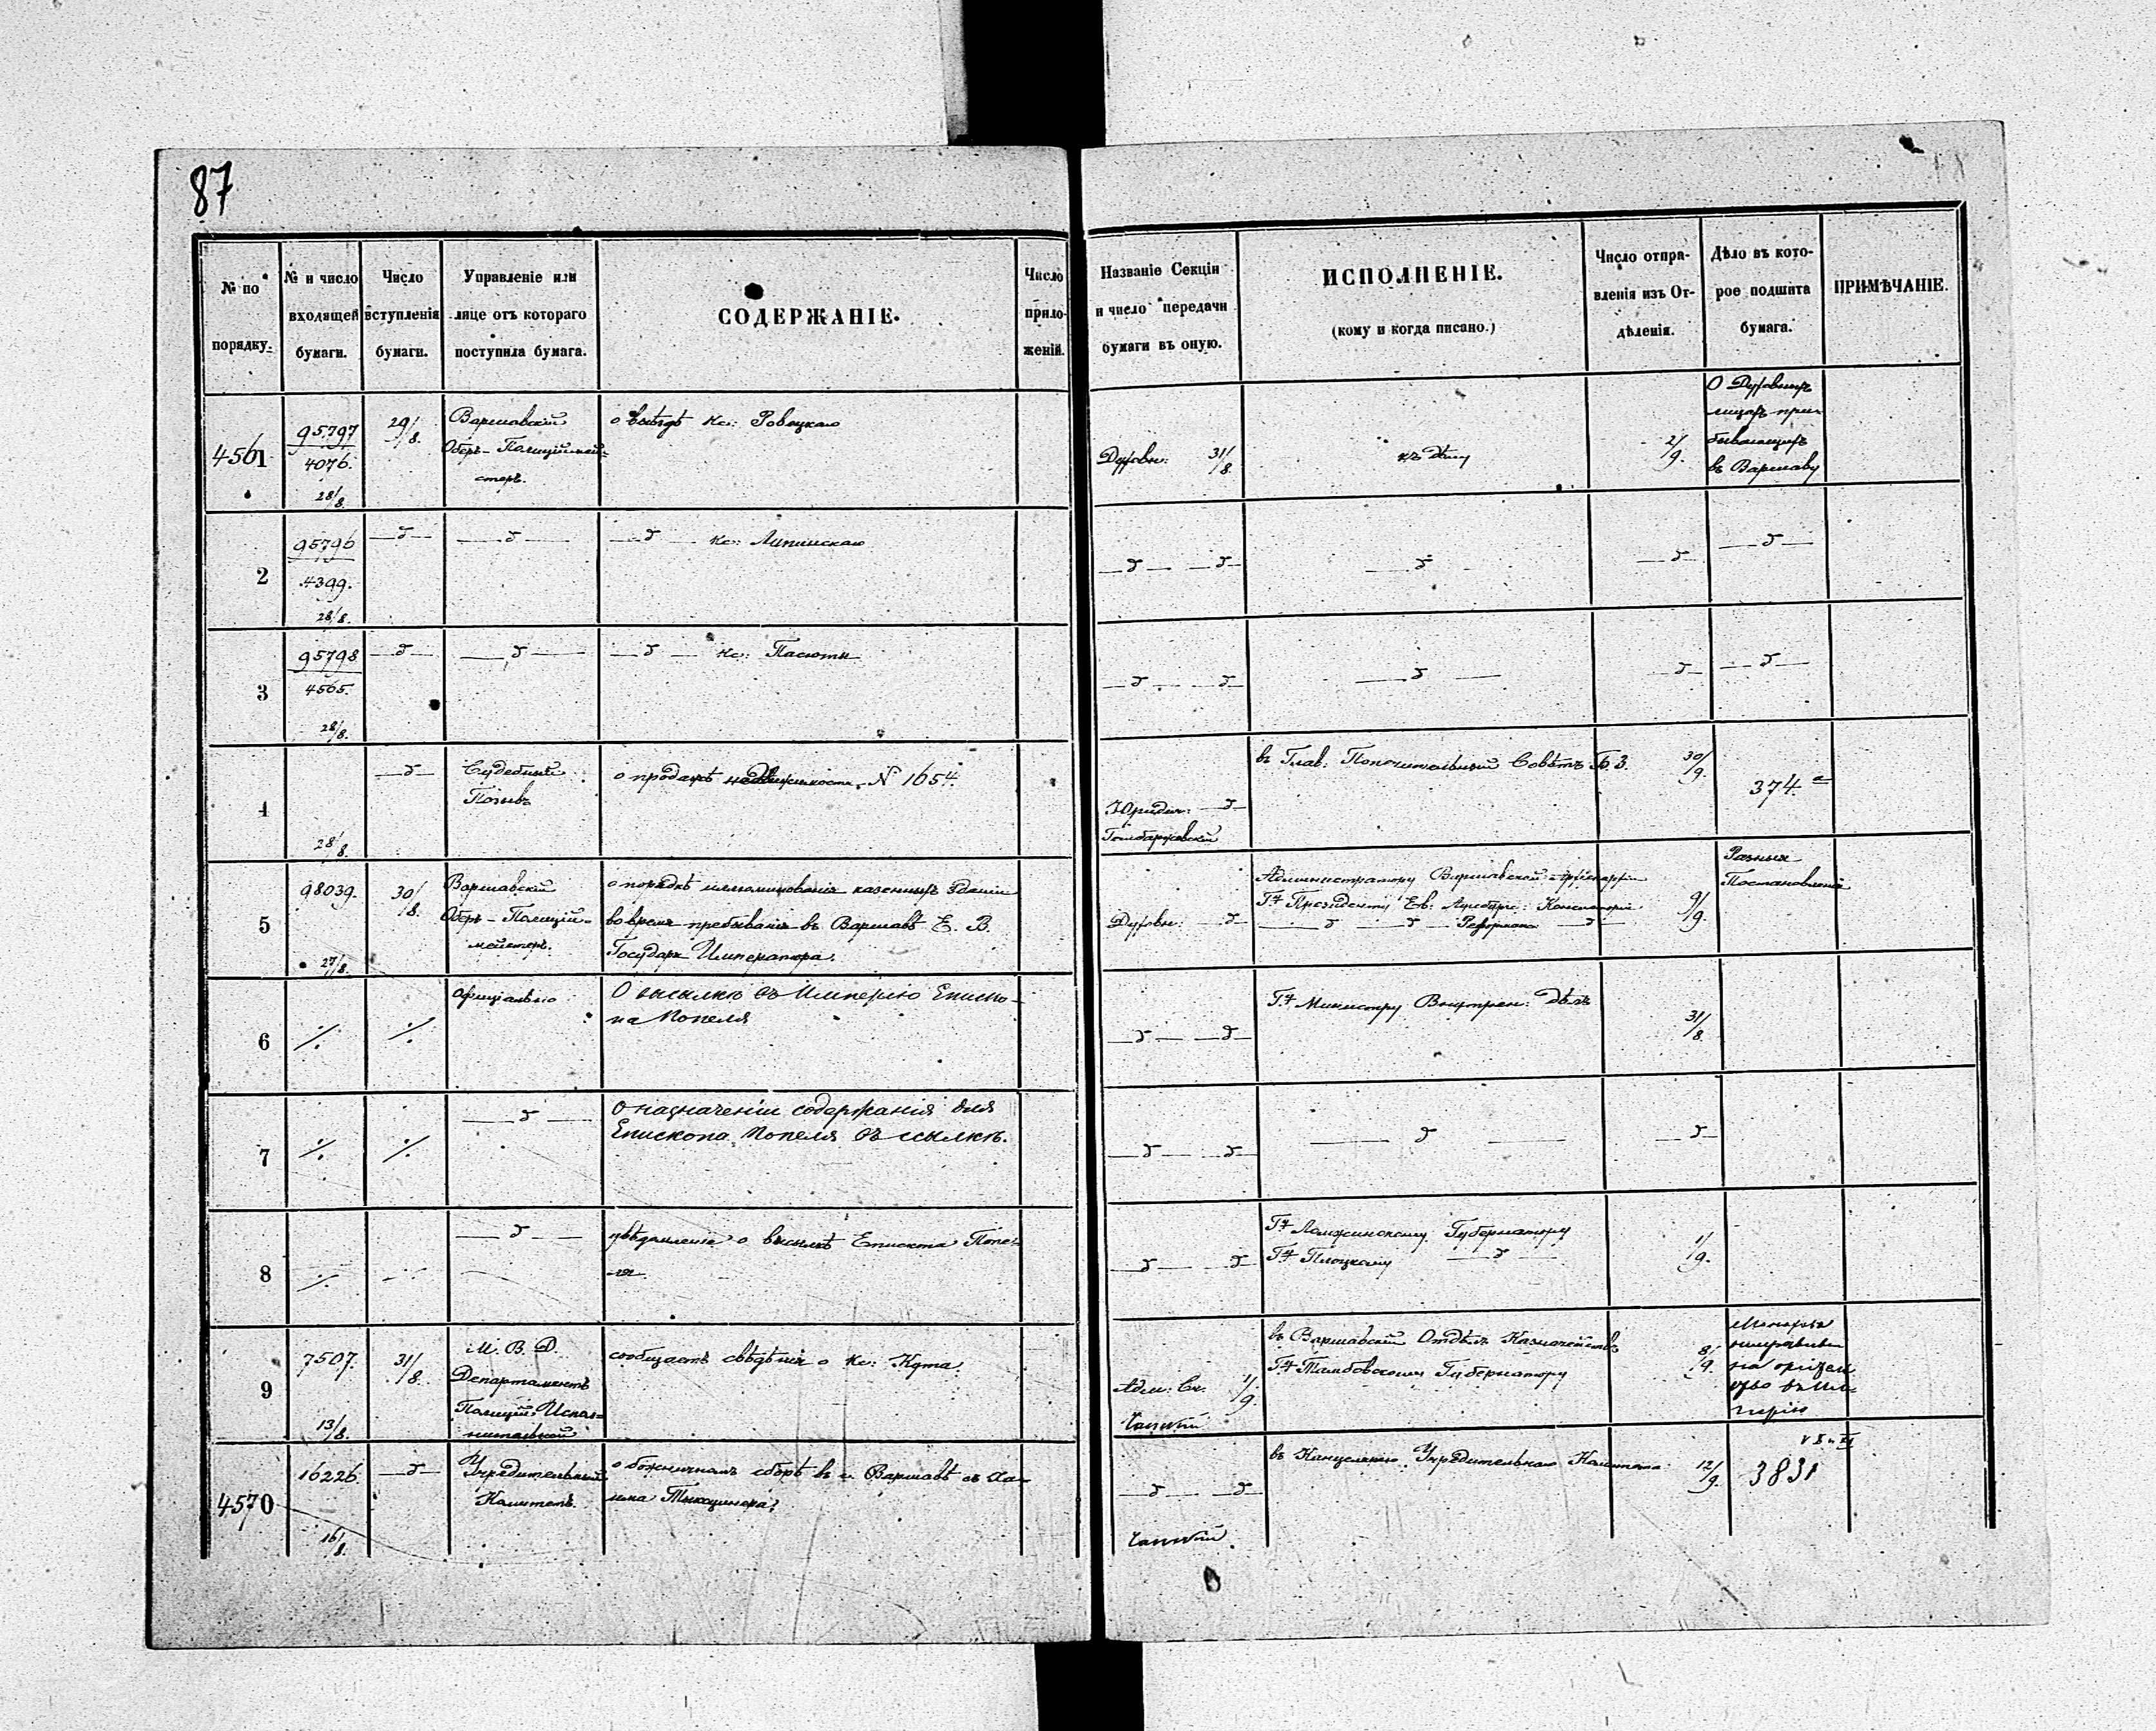 87
№ по порядку.
№ и число входящей бумаги.
Число вступленія бумаги.
Управленіе или лице отъ котораго поступила бумага.
СОДЕРЖАНІЕ.
Число приложеній.
Названіе Секціи и число передачи бумаги въ оную.
ИСПОЛНЕНІЕ.
(кому и когда писано.)
Число отправленія изъ Отдѣленія.
Дѣло въ которое подшита бумага.
ПРИМѢЧАНІЕ.
4561
95797
4076.
28/8.
29/8.
Варшавскій
Оберъ-Полицiймей-
стеръ.
о выѣздѣ Кс: Ровецкаго
Духовн: 31/8.
къ дѣлу
2/9.
О Духовныхъ
лицахъ при-
бывающихъ
въ Варшаву
2
95796
4399.
28/8.
Кс: Липинскаго
3
95798
4565.
28/8.
Кс: Пасюты
4
28/8.
Судебный
Позывъ
о продажѣ недвижимости № 1654.
Юридич:
въ Глав. Попечительный Совѣтъ Б. З.
30/9.
374 а
5
98039.
27/8.
30/8.
Варшавскій
Оберъ-Полицiй-
мейстеръ.
о порядкѣ иллюминованія казенныхъ зданій
во время пребыванія въ Варшавѣ Е. В.
Государя Императора.
Духовн:
Администратору Варшавской Архіепархіи
Гну Президенту Ев: Аугсбург: Консисторіи
Реформат
9/9.
Разныя
Постановленія
6
Офиціально
О высылкѣ въ Имперію Еписко-
па Попеля
Гну Министру Внутрен: Дѣлъ
31/8.
7
О назначеніи содержанія для
Епископа Попеля въ ссылкѣ.
8
увѣдомленіе о высылкѣ Епископа Попе-
ля.
Гну Ломжинскому Губернатору
Гну Плоцкому
1/9.
9
7507.
13/8.
31/8.
М. В. Д.
Департаментъ
Полиціи Испол-
нительной
сообщаетъ свѣдѣнія о Кс: Кута.
Адм: Ск. 1/9.
въ Варшавскій Отдѣлъ Казначейства
Гну Тамбовскому Губернатору
8/9.
4570
16226.
16/8.
Учредительный
Комитетъ.
о божничномъ сборѣ въ г. Варшавѣ съ Ха-
има Тыкоцинера.
въ Канцелярію Учредительнаго Комитета
12/9.
3831